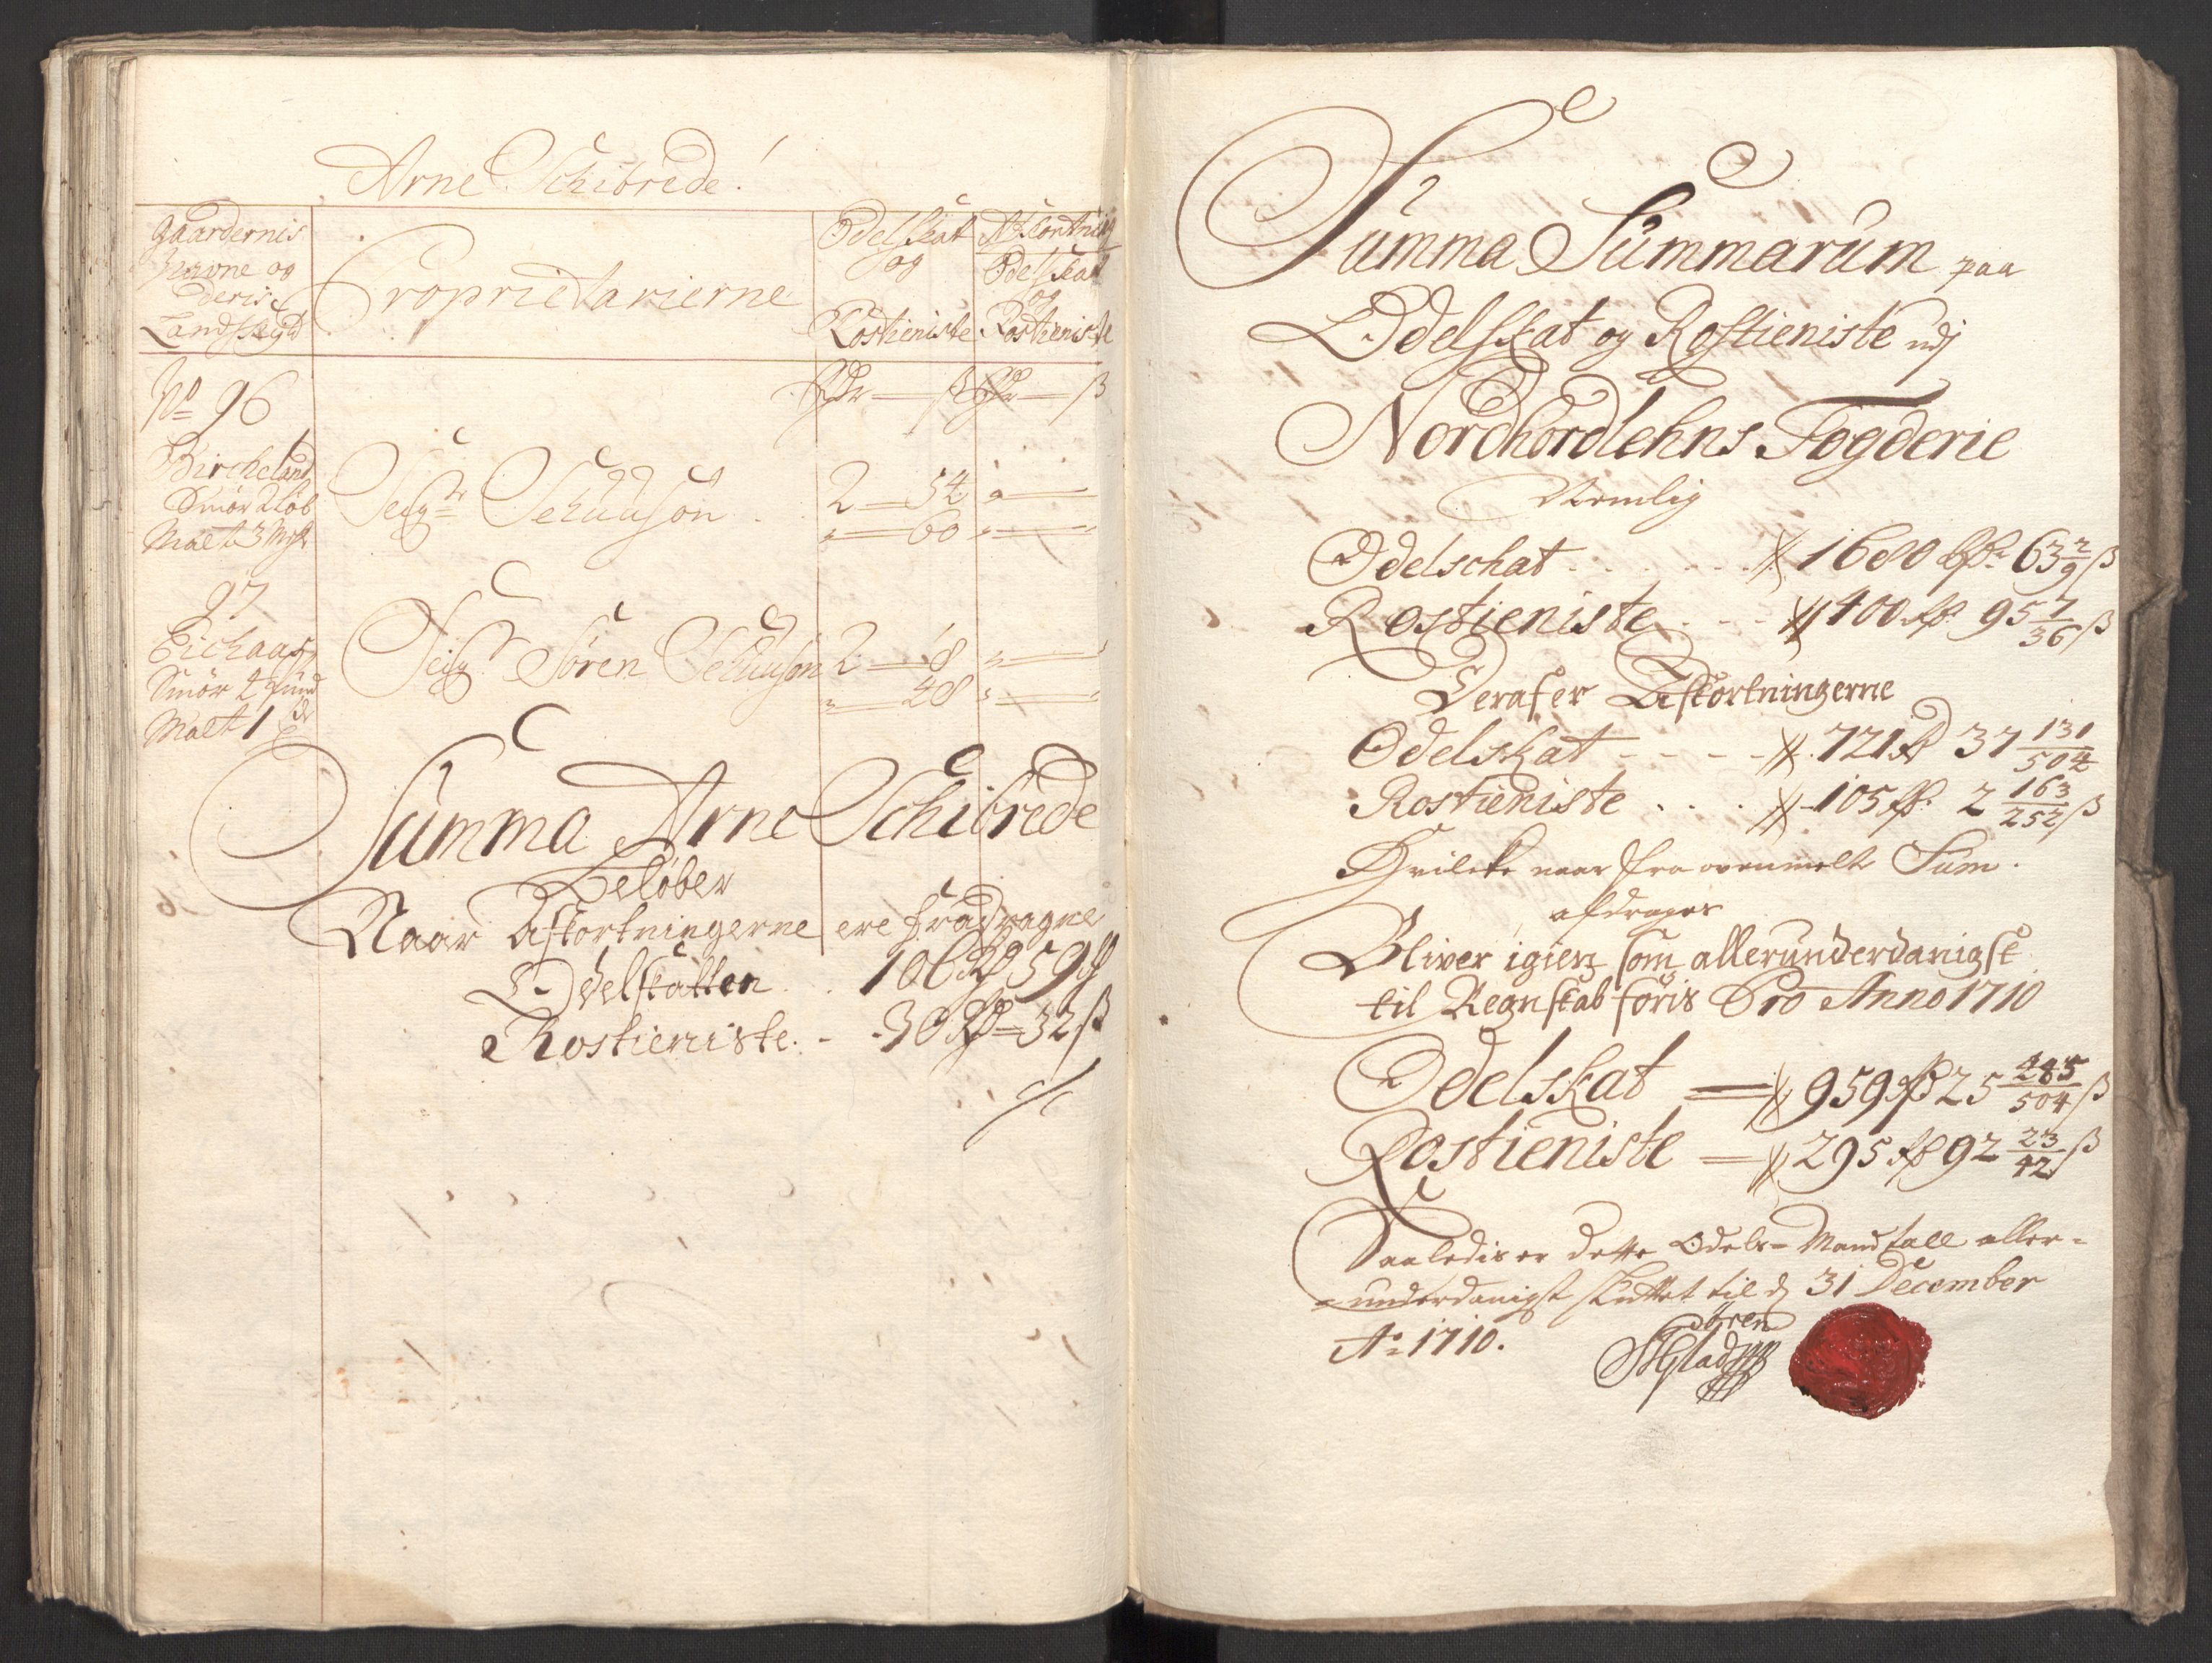 Arne Schibrede.
Gaardernis
Navne og
deris
Landskyld
Proprietarierne
Odelskat
og
Rostieniste
Afkortning
Odelskat
og
Rostieniste
No 96
Rdr — ß Rdr — ß
Bircheland
Smør 2 løb
Malt 3 Mæl
Seigr Schuuson
2 — 54
" — 60
97
Eichaas
Smør 2 pund
Malt 1
Seigr Søren Schuuson
2 — 18
" — 48
Summa Arne Schibrede
Beløber
Naar Afkortningerne ere fradragne
Odelskatten . . 106 Rd 59 ß
Rostieniste . - . 30 Rd = 32 ß
Summa Summarum paa
Odelskat og Rostieniste udj
Nordhordlehns Fogderie
Nemlig
Odelschat . . . . . . 1680 Rdr 63 2/9 ß
Rostieniste . - - - 400 Rd 95 7/36 ß
Deraf er Afkortningerne
Odelskat - - - - 721 Rd 37 131/504
Rostieniste . . . . 105 Rd 2 163/252 ß
Hvilcke naar fra ovenmelte Sum.
afdrages
Bliver igien som allerunderdanigst
til Regnskab føris Pro Anno 1710
Odelskat = 959 Rd 25 485/504 ß
Rostieniste = 295 Rd 92 23/42 ß
Saaledis er dette Odels-Mandtall aller=
=underdanigst sluttet til d 31 December
Ao 1710.
Søren